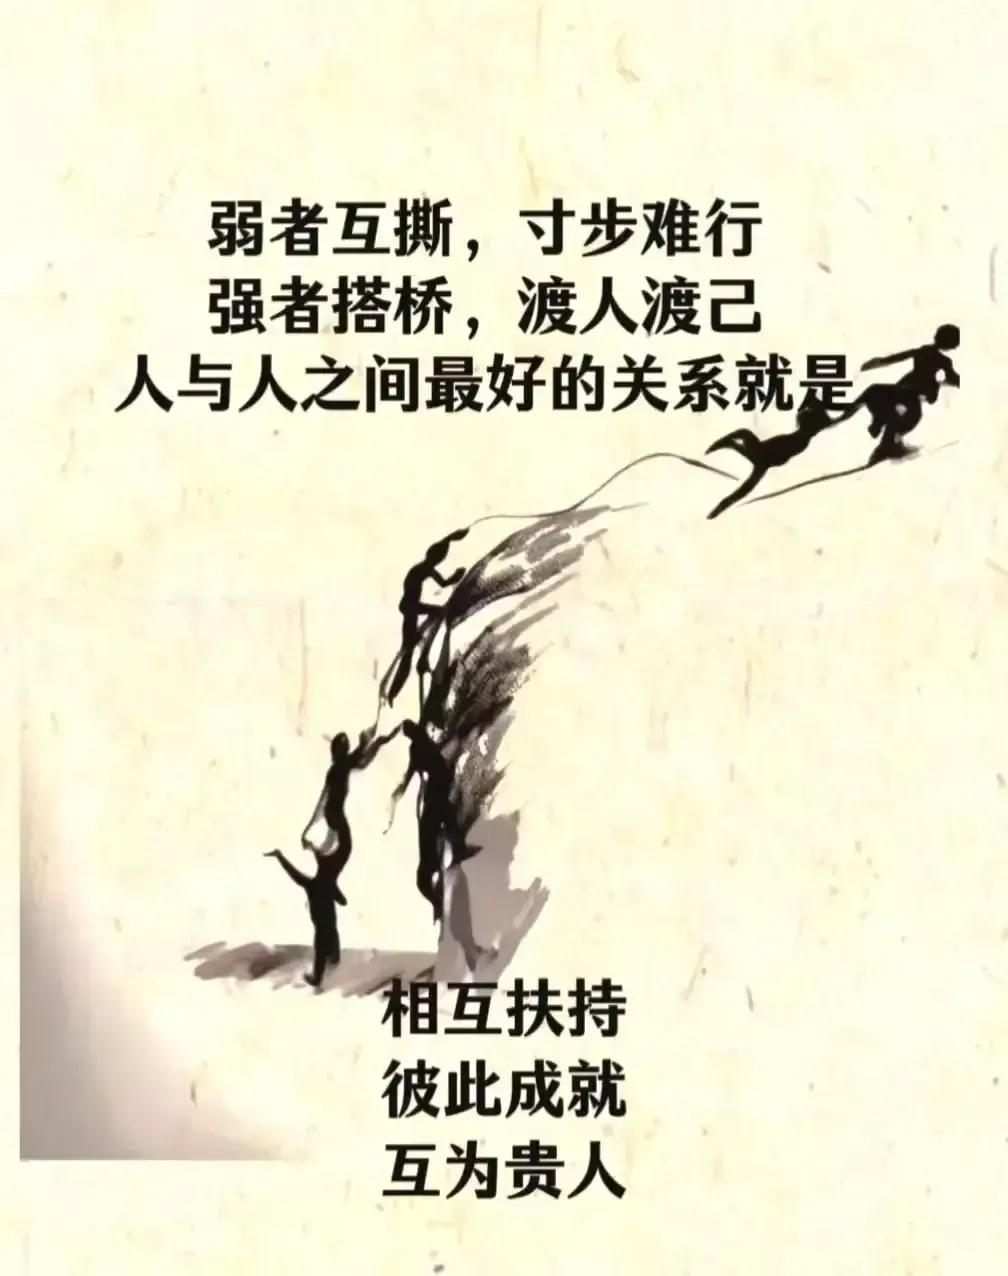 弱者互撕，寸步难行
强者搭桥，渡人渡己
人与人之间最好的关系就是
相互扶持
彼此成就
互为贵人